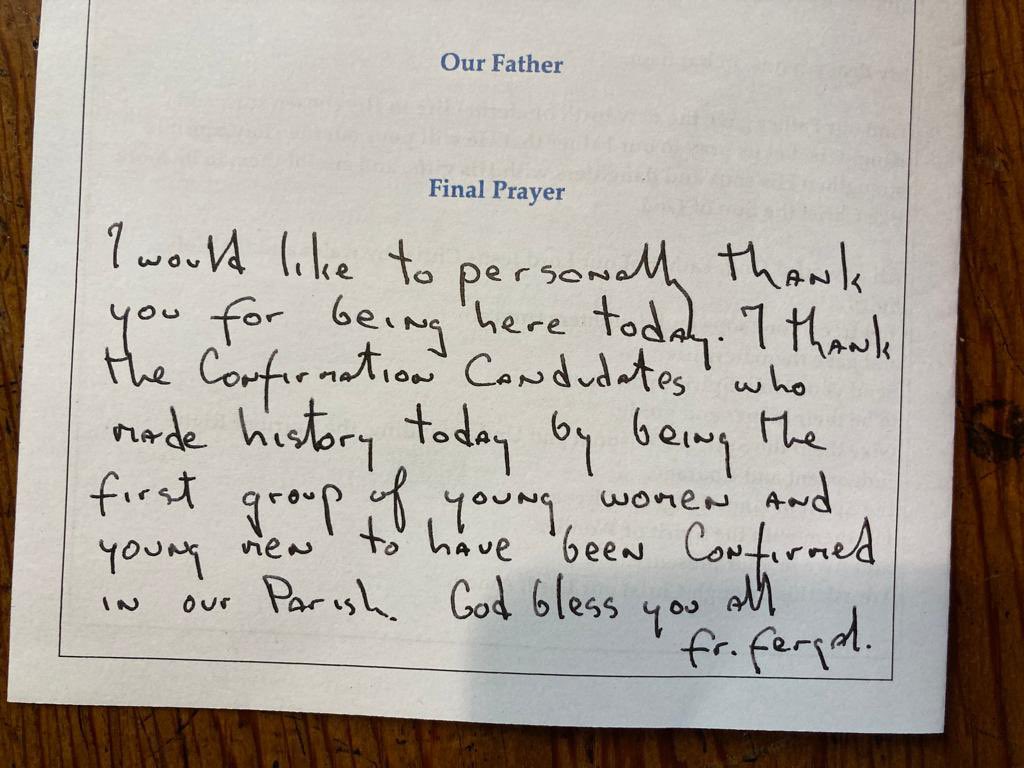 Our Father
Final Prayer
I would like to personally thank
you for being here today. I thank
the Confirmation Candudates who
made history today by being the
first group of young women and
young men to have been Confirmed
in our Parish. God bless you all
fr. fergal.